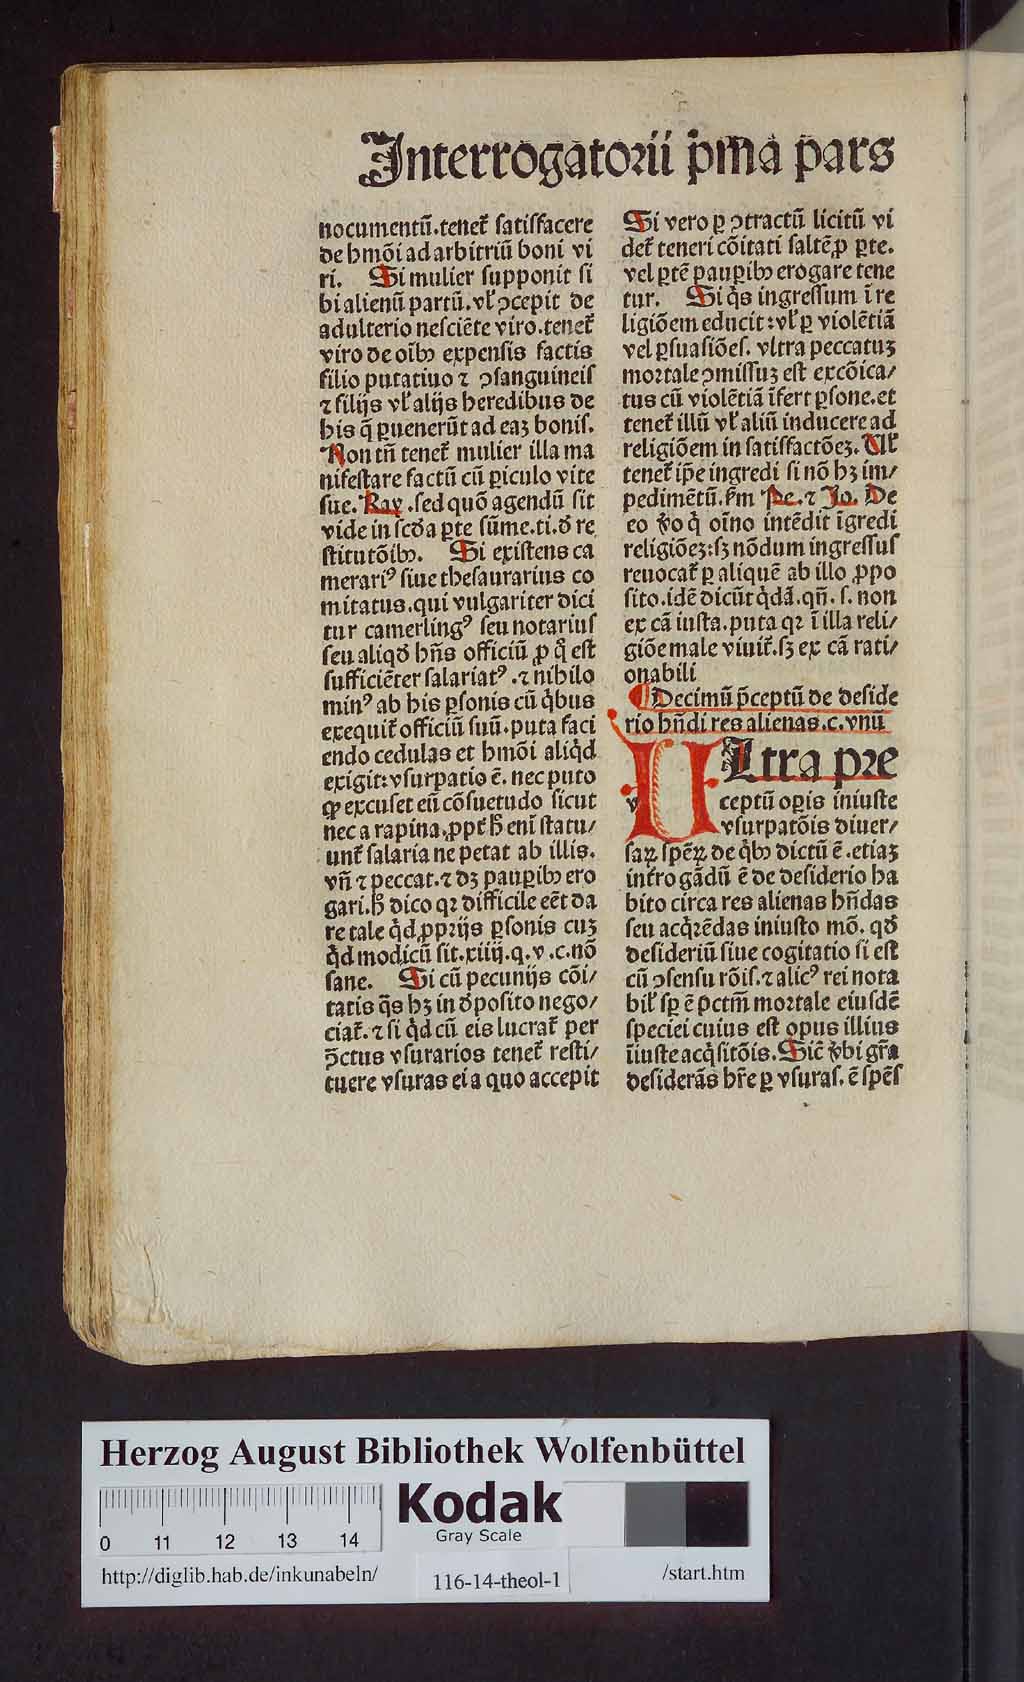 Interrogatorii p̄ma pars
nocumentū.tenet᷑ ſatiſfacere
de hmōi ad arbitriū boni vi
ri. Si mulier ſupponit ſi
bi alienū partū.vl̓ ↄcepit de
adulterio neſciēte viro.tenet᷑
viro de oībꝫ expenſis factis
filio putatiuo ⁊ ↄſanguineiſ
⁊ filijs vl̓ alijs heredibus de
his q̄ ꝑuenerūt ad eaꝫ boniſ.
Non tn̄ tenet᷑ mulier illa ma
nifeſtare factū cū ꝑiculo vite
ſue. Ray .ſed quō agendū ſit
vide in ſcd̓a ꝑte ſūme.ti.d̓ re
ſtitutōibꝫ. Si exiſtens ca
merariꝰ ſiue theſaurarius co
mitatus.qui vulgariter dici
tur camerlingꝰ ſeu notariuſ
ſeu aliqd̓ hn̄s officiū ꝓ q̊ eſt
ſufficiēter ſalariatꝰ .⁊ nihilo
minꝰ ab his ꝑſonis cū q̇bus
exequit᷑ officiū ſuū.puta faci
endo cedulas et hmōi aliq̇d
exigit:vſurpatio ē. nec puto
ꝙ excuſet eū cōſuetudo ſicut
nec a rapina.ꝓpt᷑ h̓ enī ſtatu/
unt᷑ ſalaria ne petat ab illis.
vn̄ ⁊ peccat.⁊ dꝫ pauꝑibꝫ ero
gari.h̓ dico qꝛ difficile eēt da
re tale q̇d ꝓprijs ꝑſonis cuꝫ
q̇d modicū ſit.xiiij.q.v .c.nō
ſane. Si cū pecunijs cōi/
tatis q̄s hꝫ in d̓poſito nego/
ciat᷑. ⁊ ſi q̇d cū eis lucrat᷑ per
ↄ̄ctus vſurarios tenet᷑ reſti/
tuere vſuras ei a quo accepit
Si vero ꝑ ↄtractū licitū vi
det᷑ teneri cōitati ſaltē ꝓ ꝑte.
vel ꝑtē pauꝑibꝫ erogare tene
tur. Si q̇s ingreſſum ī re
ligiōem educit:vl̓ ꝑ violētiā
vel ꝑſuaſiōeſ. vltra peccatuꝫ
mortale ↄmiſſuꝫ eſt excōica/
tus cū violētiā īfert ꝑſone.et
tenet᷑ illū vl̓ aliū inducere ad
religiōem in ſatiſfactōeꝫ. Vl̓
tenet᷑ ip̄e ingredi ſi nō hꝫ im/
pedimētū.ẜm Pe. ⁊ Jo. De
eo v̓o q̇ oīno intēdit īgredi
religiōeꝫ:ſꝫ nōdum ingreſſuſ
reuocat᷑ ꝑ aliquē ab illo ꝓpo
ſito.idē dicūt q̇dā.qn̄. ſ. non
ex cā iuſta.puta qꝛ ī illa reli/
giōe male viuit᷑.ſꝫ ex cā rati/
onabili
¶ Decimū p̄ceptū de deſide
rio hn̄di res alienas.c.vnū
v
ULtra pre
ceptū oꝑis iniuſte
vſurpatōis diuer/
ſaꝝ ſpēꝝ de q̇bꝫ dictū ē .etiaꝫ
int᷑rogādū ē de deſiderio ha
bito circa res alienas hn̄das
ſeu acq̇rēdas iniuſto mō. qd̓
deſideriū ſiue cogitatio ſi eſt
cū ↄſenſu rōiſ.⁊ alicꝰ rei nota
bil̓ ſꝑ ē pctm̄ mortale eiuſdē
ſpeciei cuius eſt opus illius
īiuſte acq̇ſitōis.Sic̄ v̓bi gr̄a
deſiderās hr̄e ꝑ vſuraſ. ē ſpēſ
Herzog August Bibliothek Wolfenbüttel
0 11 12 13 14
Kodak
Gray Scale
http://diglib.hab.de/inkunabeln/
116-14-theol-1
/start.htm